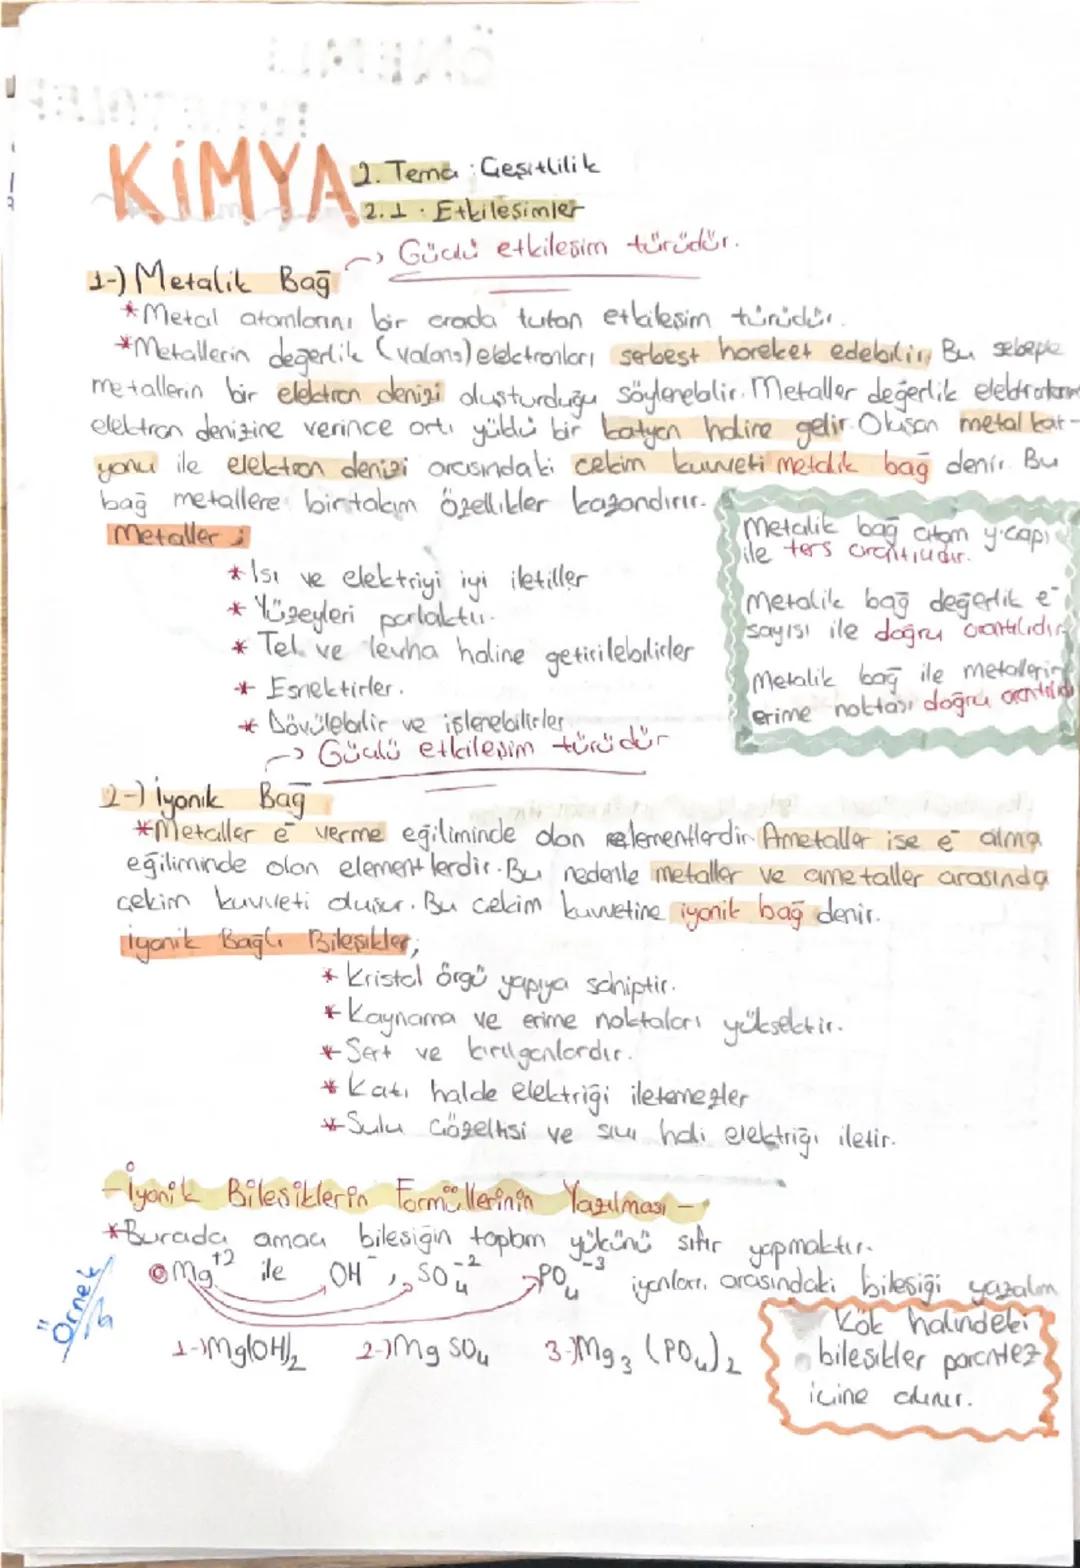 KİMYA
2. Tema : Çeşitlilik
2.1. Etkileşimler
→ Güçlü etkileşim türüdür.
1-) Metalik Bağ
*Metal atomlarını bir arada tutan etkileşim türüdür.
*Metallerin değerlik (valans) elektronları serbest hareket edebilir. Bu sebeple
metallerin bir elektron denizi oluşturduğu söylenebilir. Metaller değerlik
elektron denizine verince artı yüklü bir katyon haline gelir. Oluşan metal kat-
yonu ile elektron denizi arasındaki çekim kuvveti metalik bağ denir. Bu
bağ metallere bir takım özellikler kazandırır.
Metaller ;
* Isı ve elektriyi iyi iletiller
* Yüzeyleri parlaktır.
* Tel ve levha haline getirilebilirler
* Esnektirler.
* Dövülebilir ve işlenebilirler
Metalik bağ atom y.çapı
ile ters orantılıdır.
Metalik bağ değerlik e⁻
sayısı ile doğru orantılıdır
Metalik bağ ile metallerin
erime noktası doğru orantılıdı
→ Güçlü etkileşim türüdür
2-) İyonik Bağ
*Metaller e⁻ verme eğiliminde olan elementlerdir. Ametaller ise e⁻ alma
eğiliminde olan elementlerdir. Bu nedenle metaller ve ametaller arasında
çekim kuvveti oluşur. Bu çekim kuvvetine iyonik bağ denir.
İyonik Bağlı Bileşikler;
* Kristal örgü yapıya sahiptir.
* Kaynama ve erime noktaları yüksektir.
* Sert ve kırılganlardır.
* Katı halde elektriği iletemezler
* Sulu çözeltisi ve sıvı hali elektriği iletir.
-İyonik Bileşiklerin Formüllerinin Yazılması -
*Burada amaç bileşiğin toplam yükünü sıfır yapmaktır.
Örnek
Mg⁺² ile OH⁻, SO₄⁻² PO₄⁻³ iyonları arasındaki bileşiği yazalım
1-)Mg(OH)₂ 2-)Mg SO₄ 3-)Mg₃ (PO₄)₂
Kök halindeki
bileşikler parantez
içine alınır.